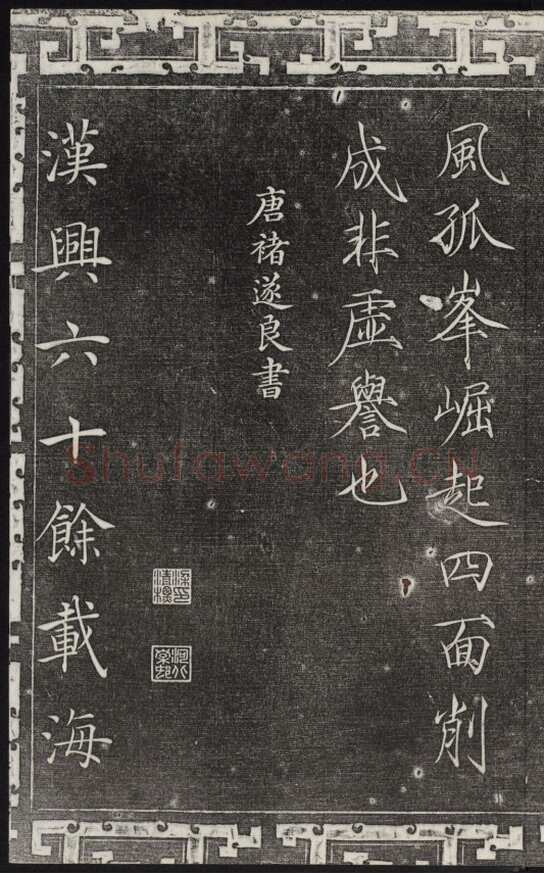 風孤峯崛起四面削
成非虛譽也
唐褚遂良書
漢興六十餘載海
Shufawang.CN